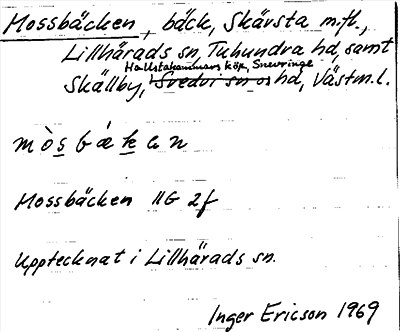 Mossbäcken, bäck, Skärsta m.fl.,
Lillhärads sn, Tuhundra hd, samt
Hallstahammars köp, Snevringe
Skällby, Svedvi sn o hd, Västm.l.
mòsbákan
Mossbäcken 11G 2f
Upptecknat i Lillhärads sn.
Inger Ericson 1969